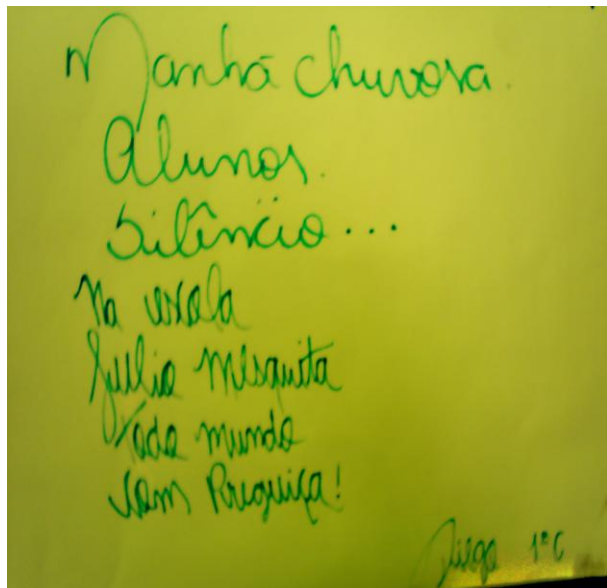 Manhã chuvosa.
Alunos.
Silêncio...
Na escola
Julio Mesquita
Todo mundo
com Preguiça!
Diego 1º C